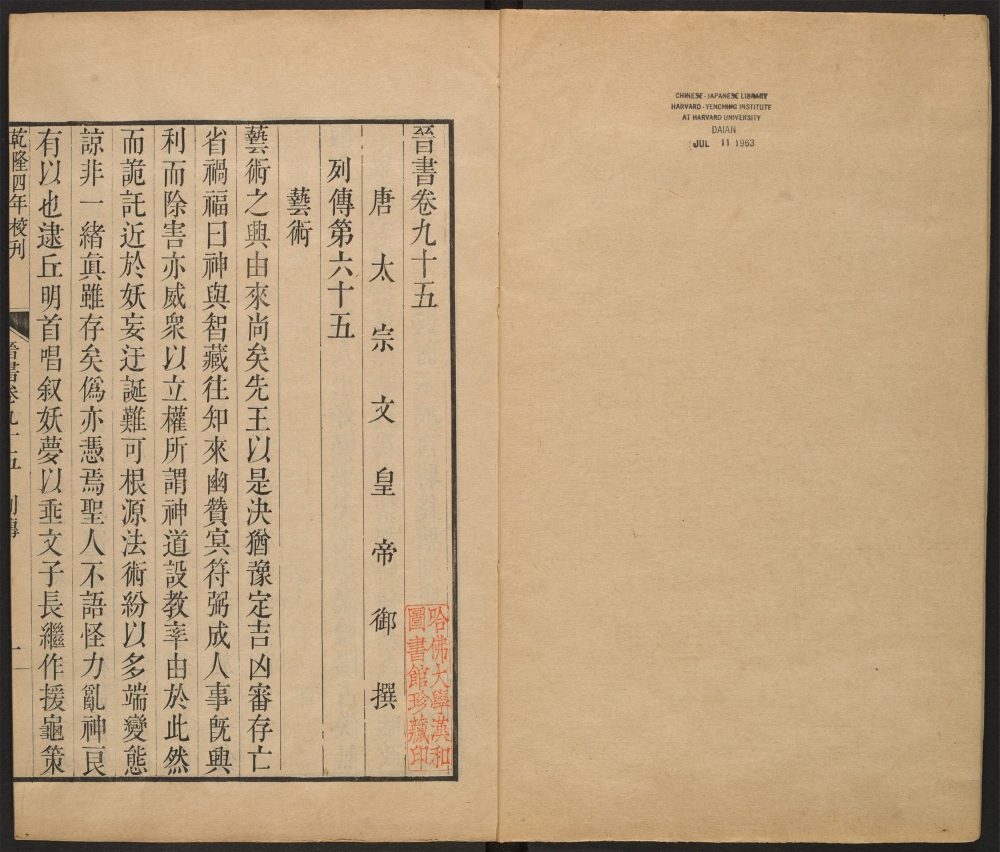 CHINESE-JAPANESE LIBRARY
HARVARD-YENCHING INSTITUTE
AT HARVARD UNIVERSITY
DAIAN
JUL 11 1963
晉書卷九十五
唐太宗文皇帝御撰
列傳第六十五
藝術
藝術之興由來尚矣先王以是決猶豫定吉凶審存亡
省禍福曰神與智藏往知來幽贊冥符弼成人事旣興
利而除害亦威衆以立權所謂神道設教率由於此然
而詭託近於妖妄迂誕難可根源法術紛以多端變態
諒非一緒眞雖存矣僞亦憑焉聖人不語怪力亂神良
有以也逮丘明首唱叙妖夢以垂文子長繼作援龜策
乾隆四年校刊
晉書卷九十五 列傳
一
哈佛大學漢和
圖書館珍藏印